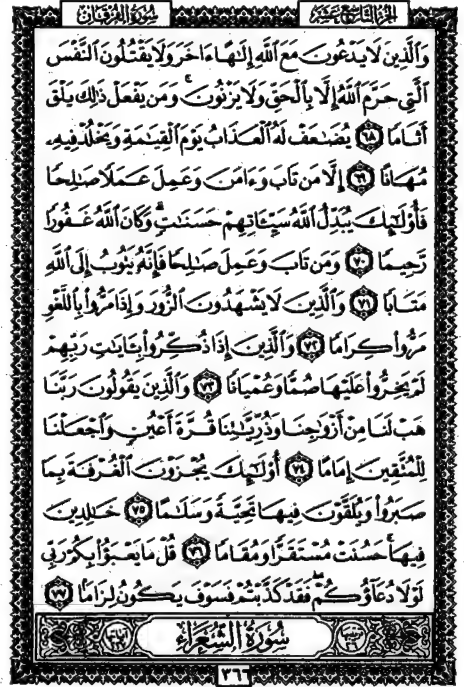 سُورَةُ الفُرْقَانِ
الجُزءُ التَّاسِعَ عَشَرَ
وَٱلَّذِينَ لَا يَدْعُونَ مَعَ ٱللَّهِ إِلَٰهًا ءَاخَرَ وَلَا يَقْتُلُونَ ٱلنَّفْسَ
ٱلَّتِي حَرَّمَ ٱللَّهُ إِلَّا بِٱلْحَقِّ وَلَا يَزْنُونَ ۚ وَمَن يَفْعَلْ ذَٰلِكَ يَلْقَ
أَثَامًا ٦٨ يُضَٰعَفْ لَهُ ٱلْعَذَابُ يَوْمَ ٱلْقِيَٰمَةِ وَيَخْلُدْ فِيهِۦ
مُهَانًا ٦٩ إِلَّا مَن تَابَ وَءَامَنَ وَعَمِلَ عَمَلًا صَٰلِحًا
فَأُو۟لَٰٓئِكَ يُبَدِّلُ ٱللَّهُ سَيِّـَٔاتِهِمْ حَسَنَٰتٍ ۗ وَكَانَ ٱللَّهُ غَفُورًا
رَّحِيمًا ٧٠ وَمَن تَابَ وَعَمِلَ صَٰلِحًا فَإِنَّهُۥ يَتُوبُ إِلَى ٱللَّهِ
مَتَابًا ٧١ وَٱلَّذِينَ لَا يَشْهَدُونَ ٱلزُّورَ وَإِذَا مَرُّوا۟ بِٱللَّغْوِ
مَرُّوا۟ كِرَامًا ٧٢ وَٱلَّذِينَ إِذَا ذُكِّرُوا۟ بِـَٔايَٰتِ رَبِّهِمْ
لَمْ يَخِرُّوا۟ عَلَيْهَا صُمًّا وَعُمْيَانًا ٧٣ وَٱلَّذِينَ يَقُولُونَ رَبَّنَا
هَبْ لَنَا مِنْ أَزْوَٰجِنَا وَذُرِّيَّٰتِنَا قُرَّةَ أَعْيُنٍ وَٱجْعَلْنَا
لِلْمُتَّقِينَ إِمَامًا ٧٤ أُو۟لَٰٓئِكَ يُجْزَوْنَ ٱلْغُرْفَةَ بِمَا
صَبَرُوا۟ وَيُلَقَّوْنَ فِيهَا تَحِيَّةً وَسَلَٰمًا ٧٥ خَٰلِدِينَ
فِيهَا ۚ حَسُنَتْ مُسْتَقَرًّا وَمُقَامًا ٧٦ قُلْ مَا يَعْبَؤُا۟ بِكُمْ رَبِّي
لَوْلَا دُعَآؤُكُمْ ۖ فَقَدْ كَذَّبْتُمْ فَسَوْفَ يَكُونُ لِزَامًا ٧٧
سُورَةُ الشُّعَرَاءِ
٣٦٦